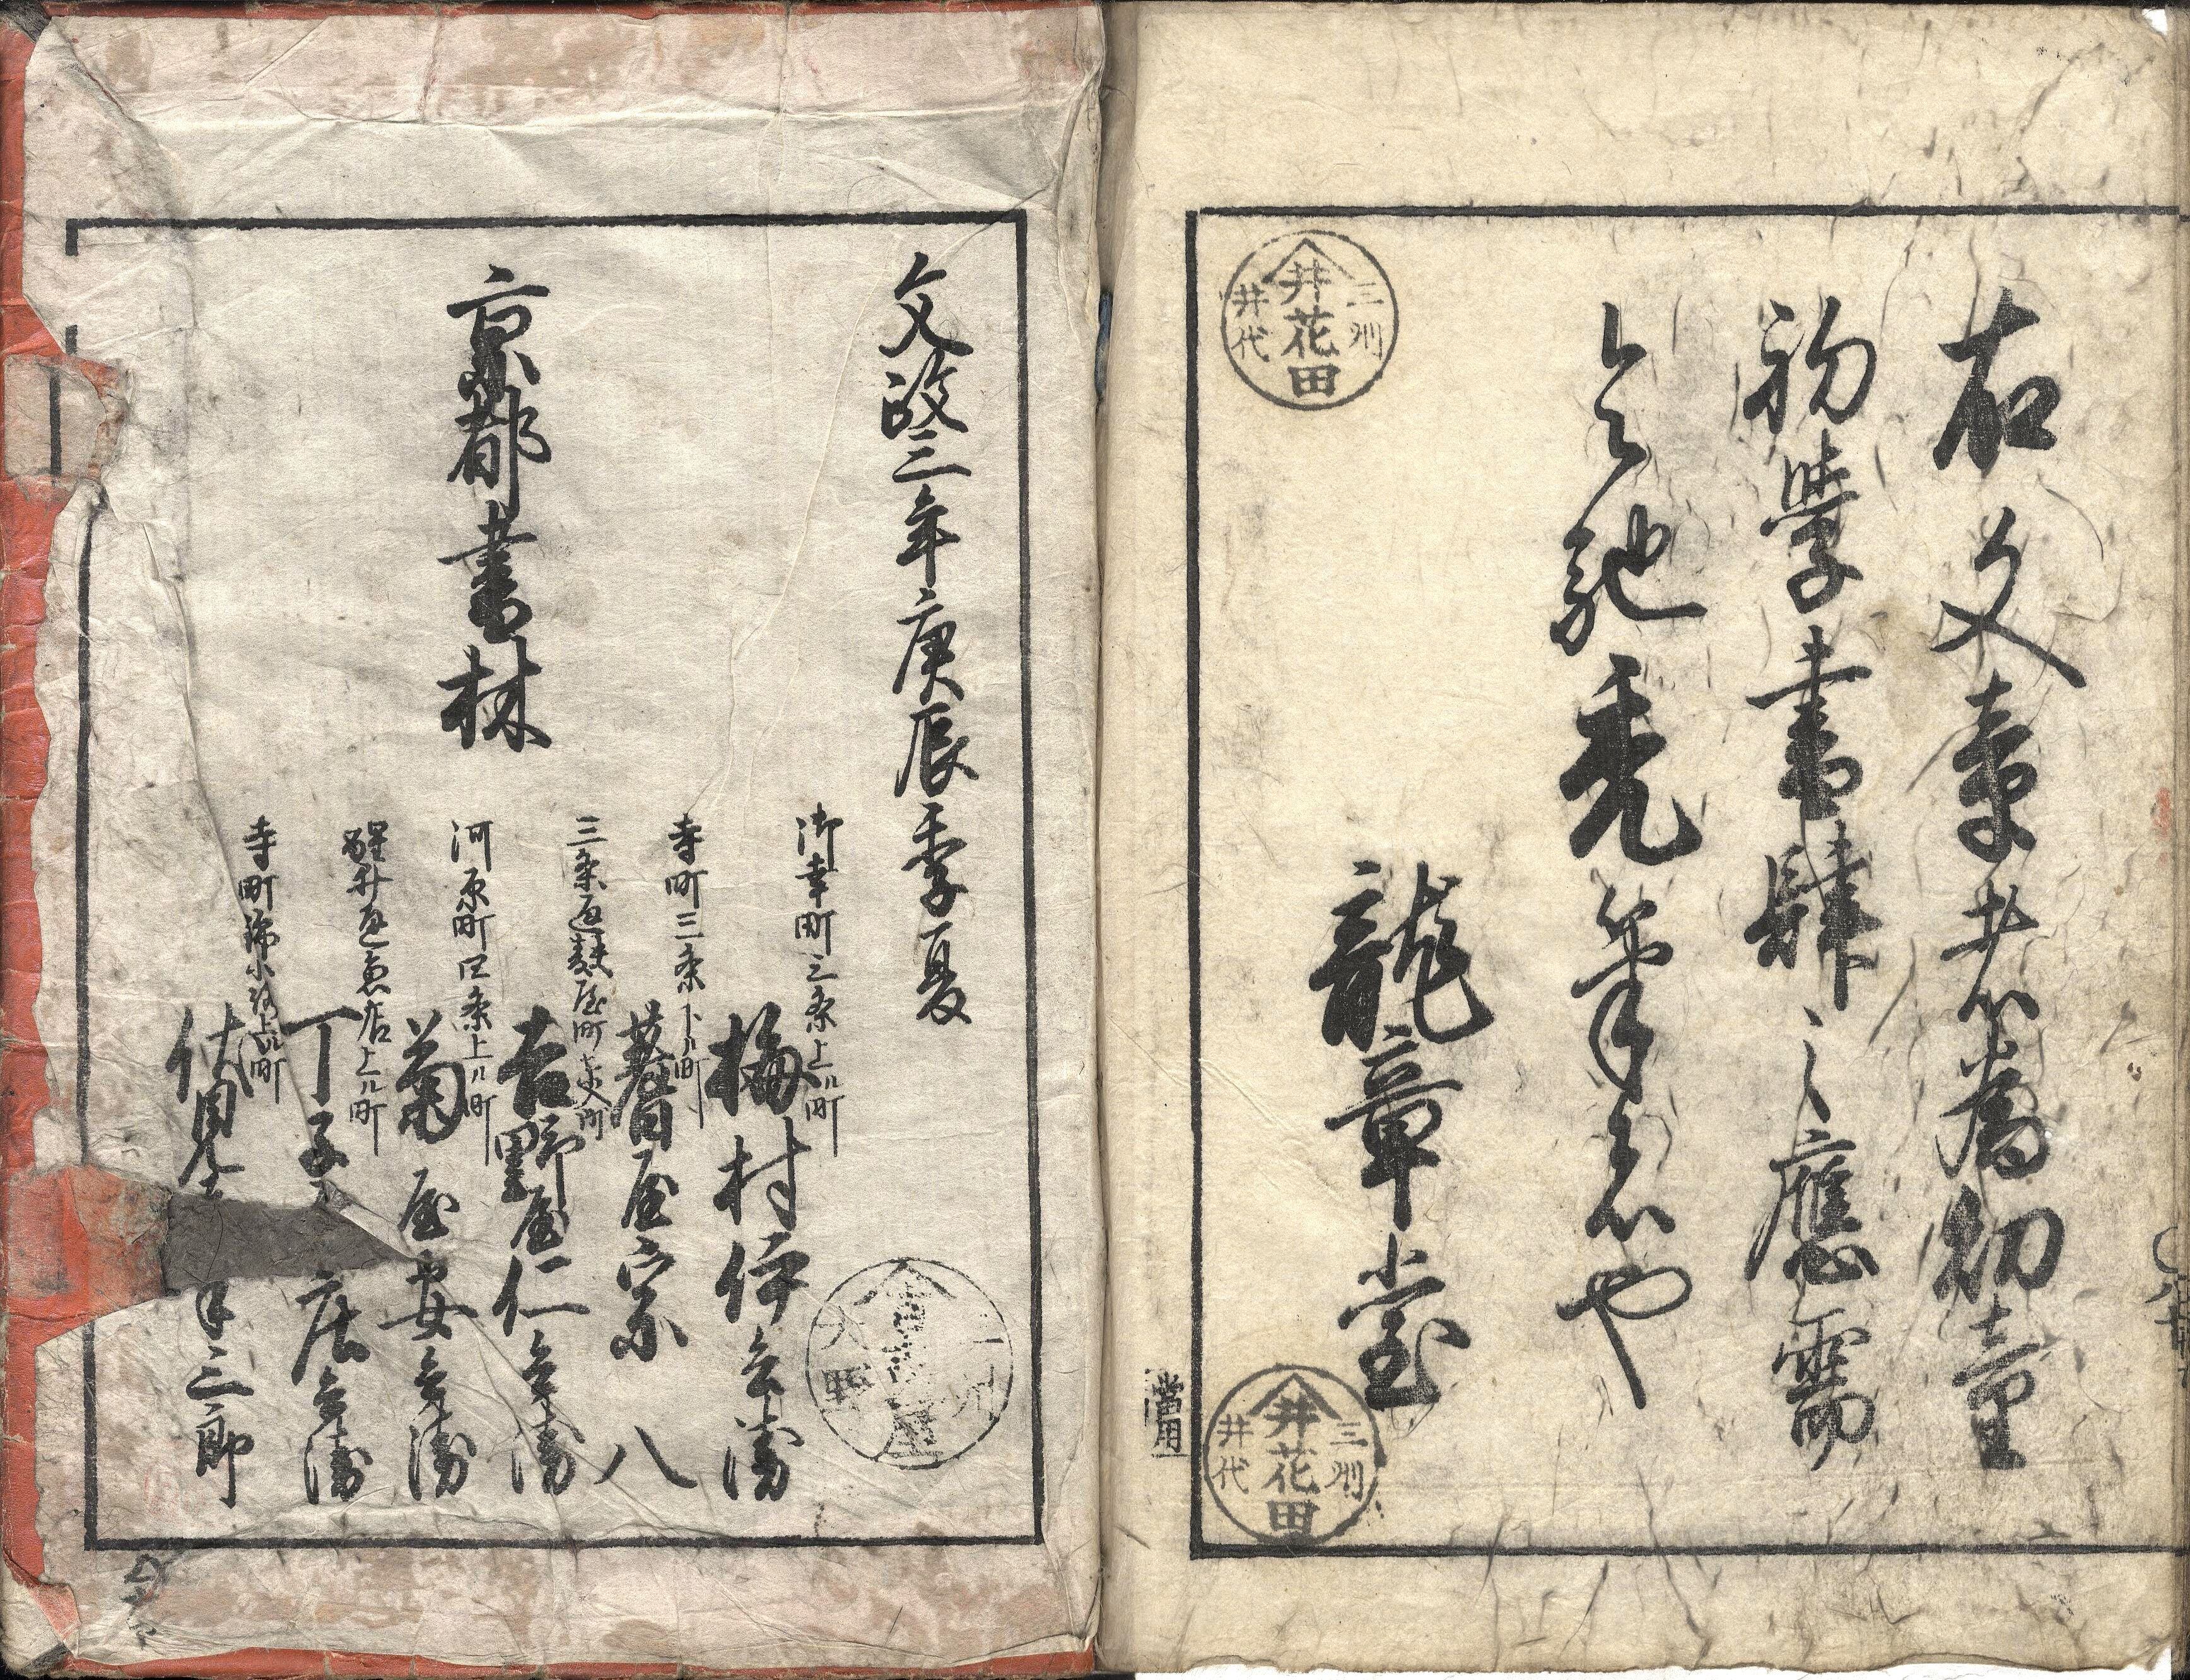 右文章者為初童
初學書肆之應需
令馳禿筆者也
龍章堂
三州
井花田
井代
三州
井花田
井代
當用
文政三年庚辰季夏
京都書林
御幸町三条上ル町
梅村伊兵衛
寺町三条下ル町
蓍屋宗八
三条通麩屋町東入町
吉野屋仁兵衛
河原町四条上ル町
菊屋安兵衛
醒井通魚店上ル町
丁子屋庄兵衛
寺町錦小路上ル町
伏見屋半三郎
三州
屋
大野